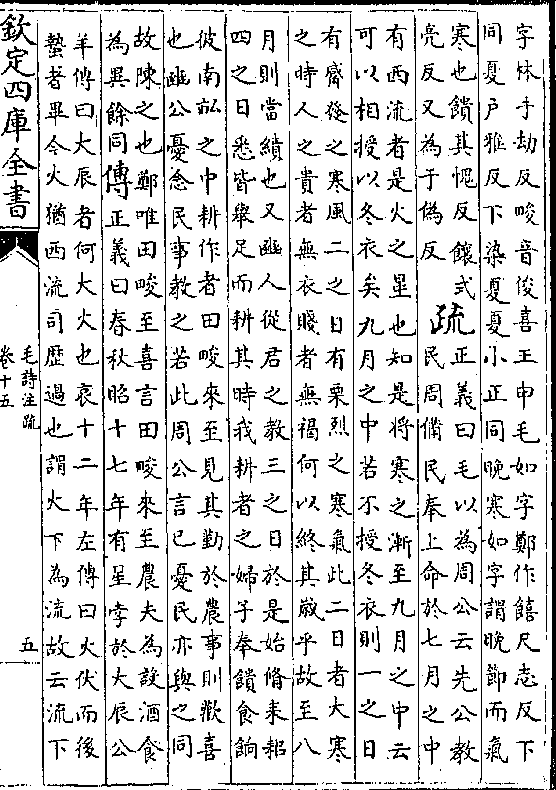 字林子劫反畯音俊喜王申毛如字鄭作饎尺志反下
同夏戸雅反下染夏夏小正同晚寒如字謂晚節而氣
寒也饋其愧反饟式
亮反又為于偽反
疏
正義曰毛以為周公云先公教
民周備民奉上命於七月之中
有西流者是火之星也知是將寒之漸至九月之中云
可以相授以冬衣矣九月之中若不授冬衣則一之日
有觱發之寒風二之日有栗烈之寒氣此二日者大寒
之時人之貴者無衣賤者無褐何以終其歲乎故至八
月則當績也又豳人從君之教三之日於是始脩耒耜
四之日悉皆舉足而耕其時我耕者之婦子奉饋食餉
彼南畝之中耕作者田畯來至見其勤於農事則歡喜
也豳公憂念民事教之若此周公言已憂民亦與之同
故陳之也鄭唯田畯至喜言田畯來至農夫為設酒食
為異餘同傳正義曰春秋昭十七年有星孛於大辰公
羊傳曰大辰者何大火也哀十二年左傳曰火伏而後
蟄者畢今火猶西流司歴過也謂火下為流故云流下
欽定四庫全書
毛詩注疏
卷十五
五